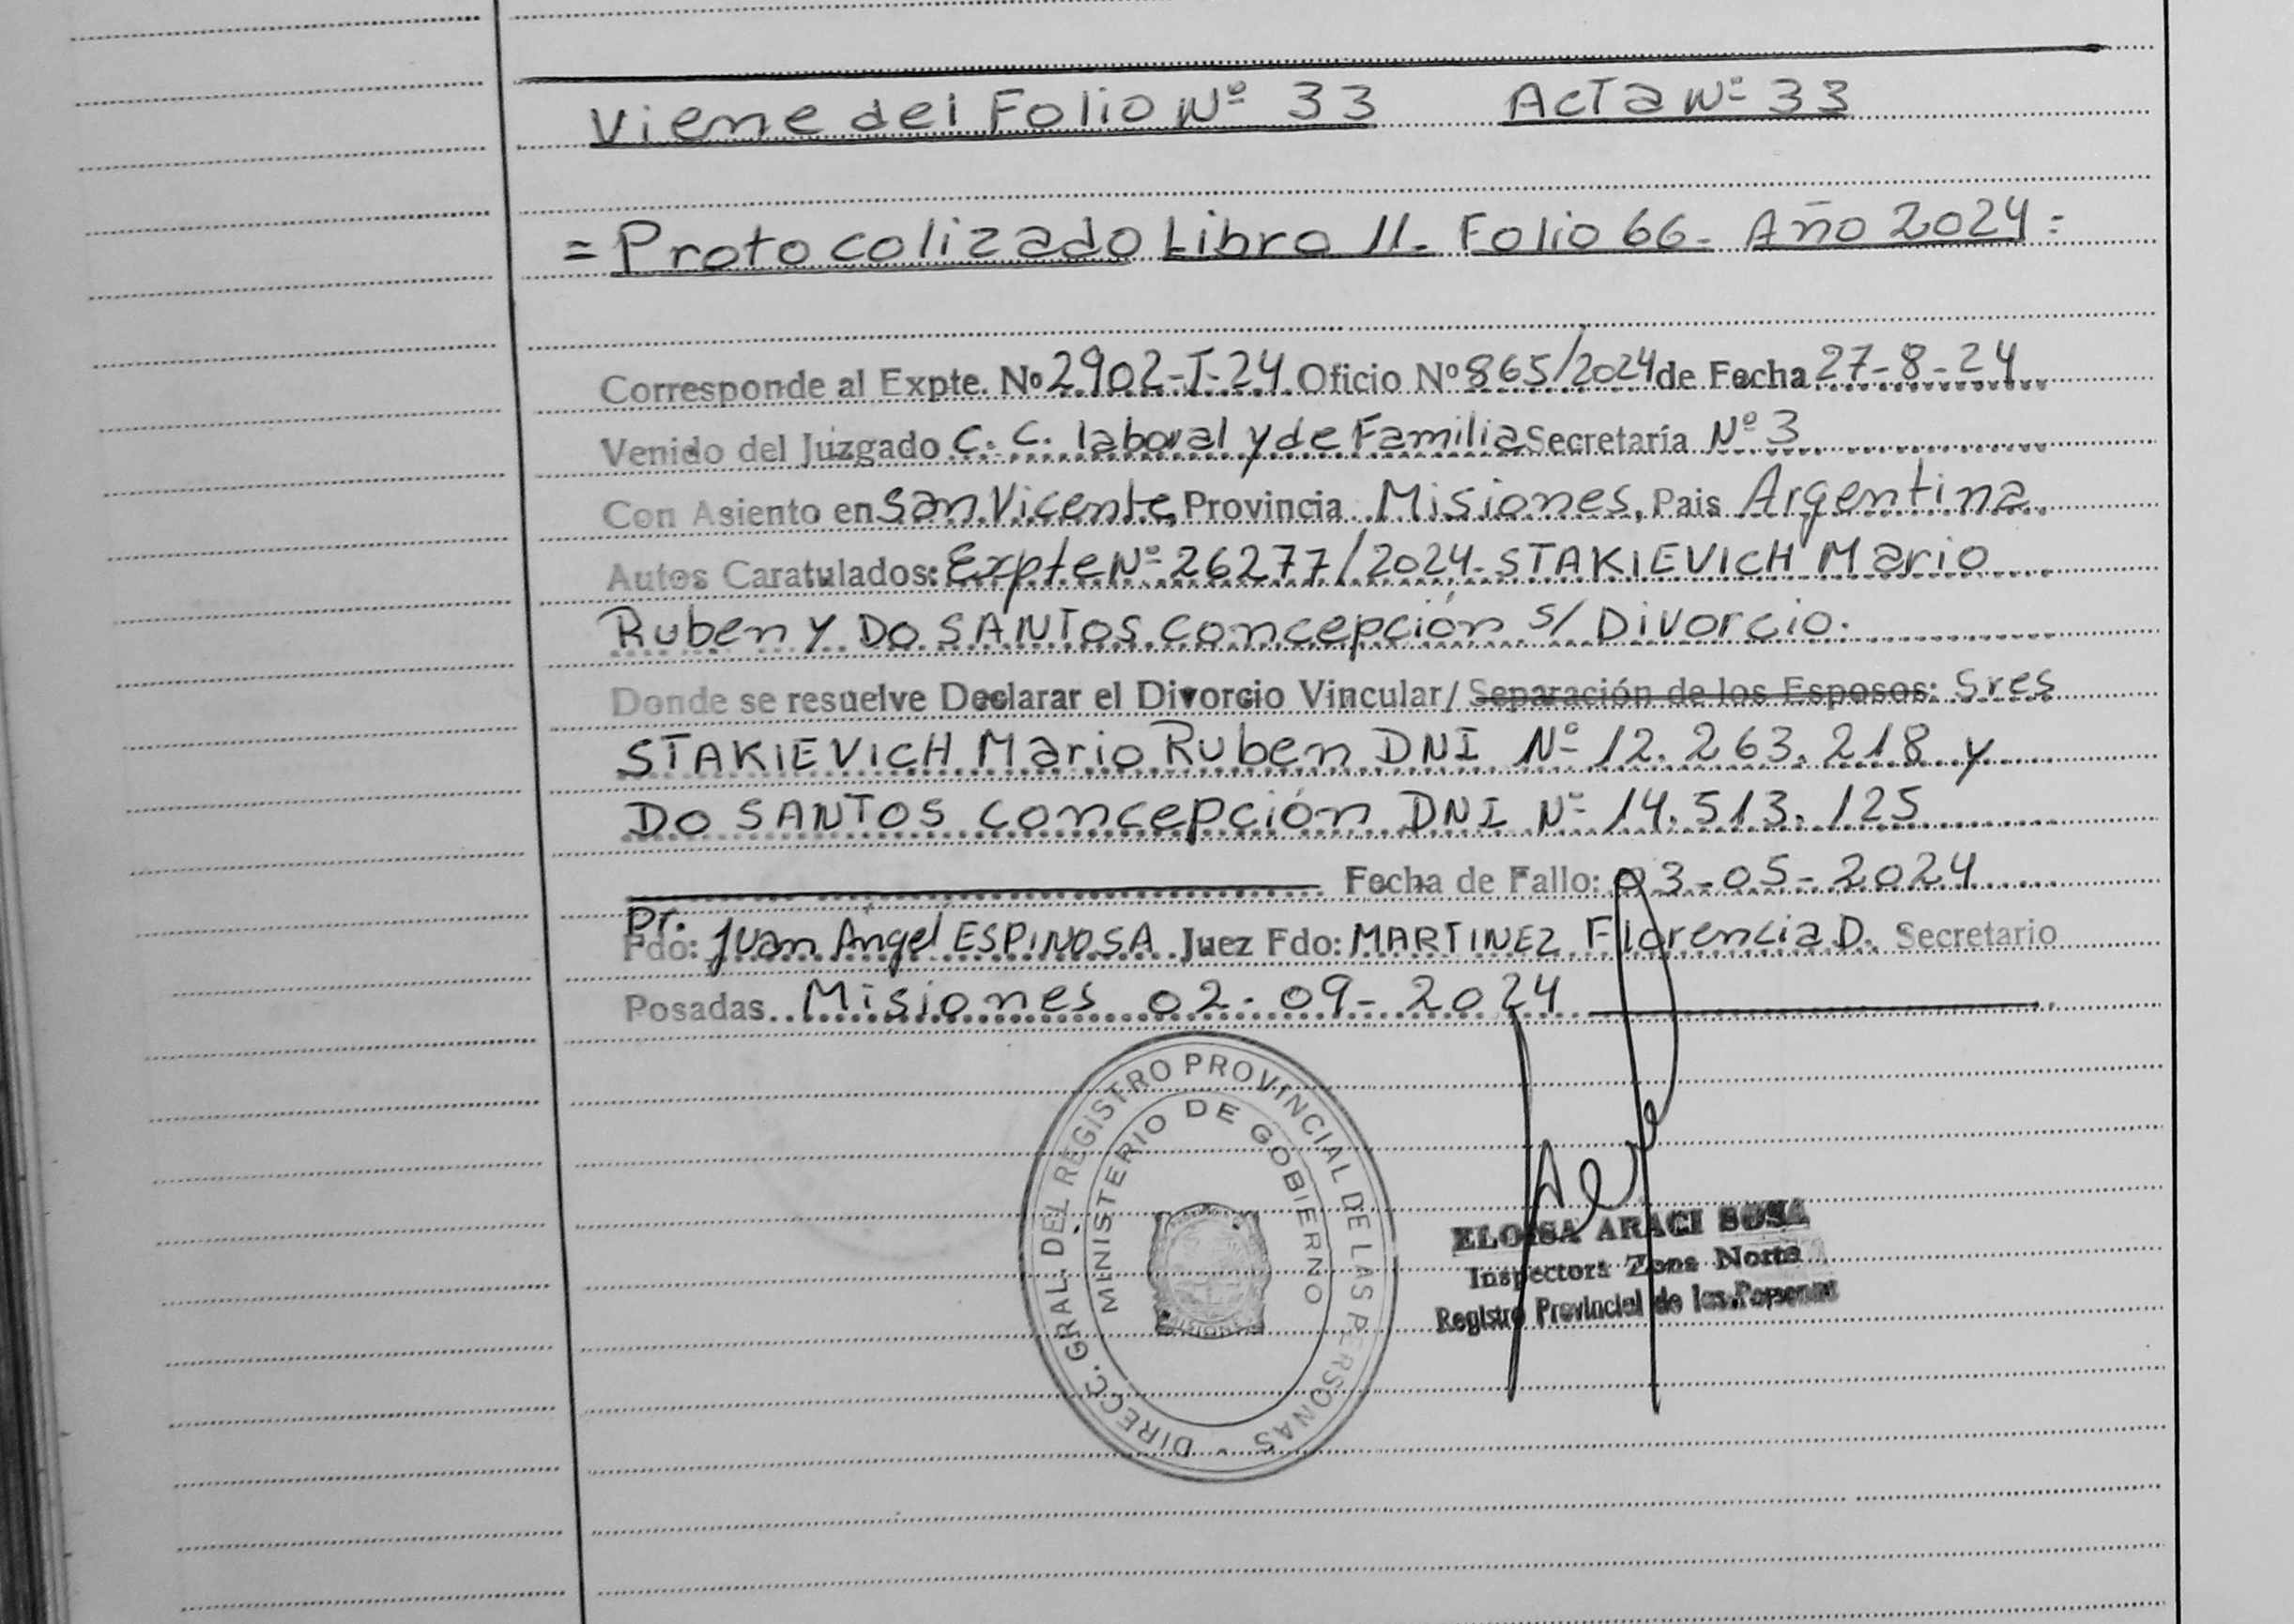 Viene del Folio Nº 33 Acta Nº 33
= Protocolizado Libro 11. Folio 66- Año 2024 =
Corresponde al Expte. Nº 2902-I-24 Oficio Nº 865/2024 de Fecha 27-8-24
Venido del Juzgado C. C. laboral y de Familia Secretaría Nº 3
Con Asiento en San Vicente, Provincia Misiones, Pais Argentina
Autos Caratulados: Expte Nº 26277/2024- STAKIEVICH Mario
Ruben y DO SANTOS Concepción s/ Divorcio.
Donde se resuelve Declarar el Divorcio Vincular/ Separación de los Esposos: Sres
STAKIEVICH Mario Ruben DNI Nº 12.263.218 y
DO SANTOS Concepción DNI Nº 14.513.125
Fecha de Fallo: 03-05-2024
Dr.
Fdo: Juan Angel ESPINOSA Juez Fdo: MARTINEZ Florencia D. Secretario
Posadas Misiones 02-09-2024
DIRECC. GRAL. DEL REGISTRO PROVINCIAL DE LAS PERSONAS
MINISTERIO DE GOBIERNO
ELOISA ARACI SOSA
Inspectora Zona Norte
Registro Provincial de las Personas